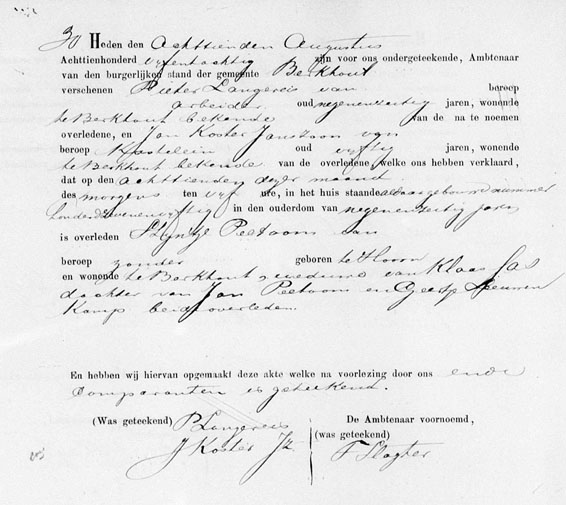 30 Heden den Achttienden Augustus
Achttienhonderd vyfentachtig zijn voor ons ondergeteekende, Ambtenaar
van den burgerlijken stand der gemeente Berkhout
verschenen Pieter Langereis van beroep
arbeider oud negenenveertig jaren, wonende
te Berkhout bekende van de na te noemen
overledene, en Jan Koster Janszoon van
beroep Kastelein oud vyftig jaren, wonende
te Berkhout bekende van de overledene, welke ons hebben verklaard,
dat op den achttienden dezer maand
des morgens ten vyf ure, in het huis staande aldaar gebuurte nummer
honderdzevenenvyftig in den ouderdom van jaren
is overleden Styntje Peetoom van
beroep zonder geboren te Hoorn
en wonende te Berkhout weduwe van Klaas Sas
dochter van Jan Peetoom en Geertje Leeuwen
Kamp beide overleden.
En hebben wij hiervan opgemaakt deze akte welke na voorlezing door ons en de
Comparanten is geteekend.
(Was geteekend) P Langereis
J Koster Jz
De Ambtenaar voornoemd,
(was geteekend)
F Slagter